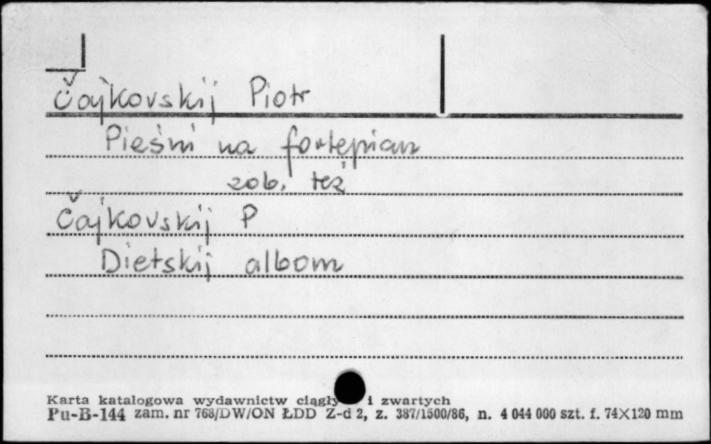 Čajkovskij Piotr
Pieśni na fortepian
zob. też
Čajkovskij P
Dietskij albom
Karta katalogowa wydawnictw ciągły i zwartych
Pu-B-144 zam. nr 768/DW/ON ŁDD Z-d 2, z. 387/1500/86, n. 4 044 000 szt. f. 74×120 mm